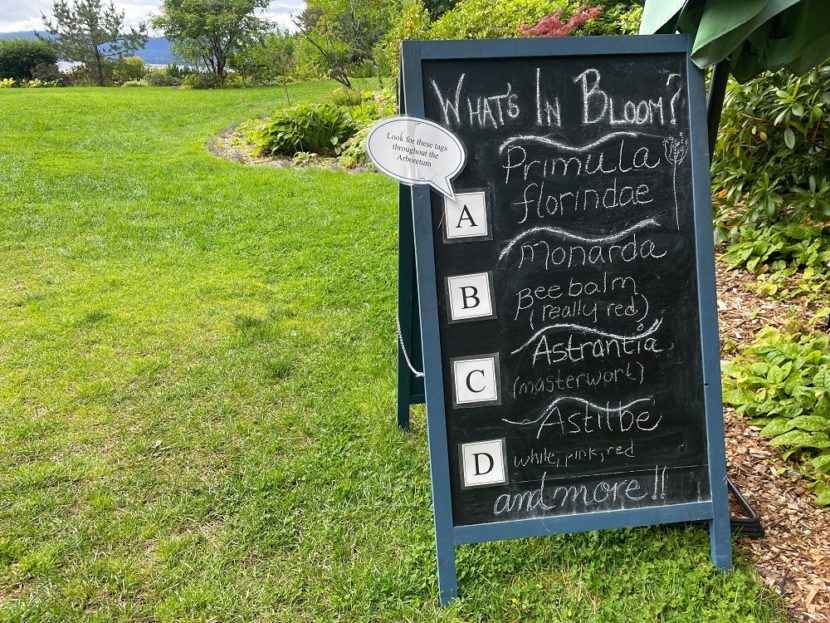 What's In Bloom?
Look for these tags
throughout the
Arboretum
A
Primula
florindae
B
Monarda
Bee balm
(really red)
C
Astrantia
(masterwork)
D
Astilbe
white, pink, red
and more!!